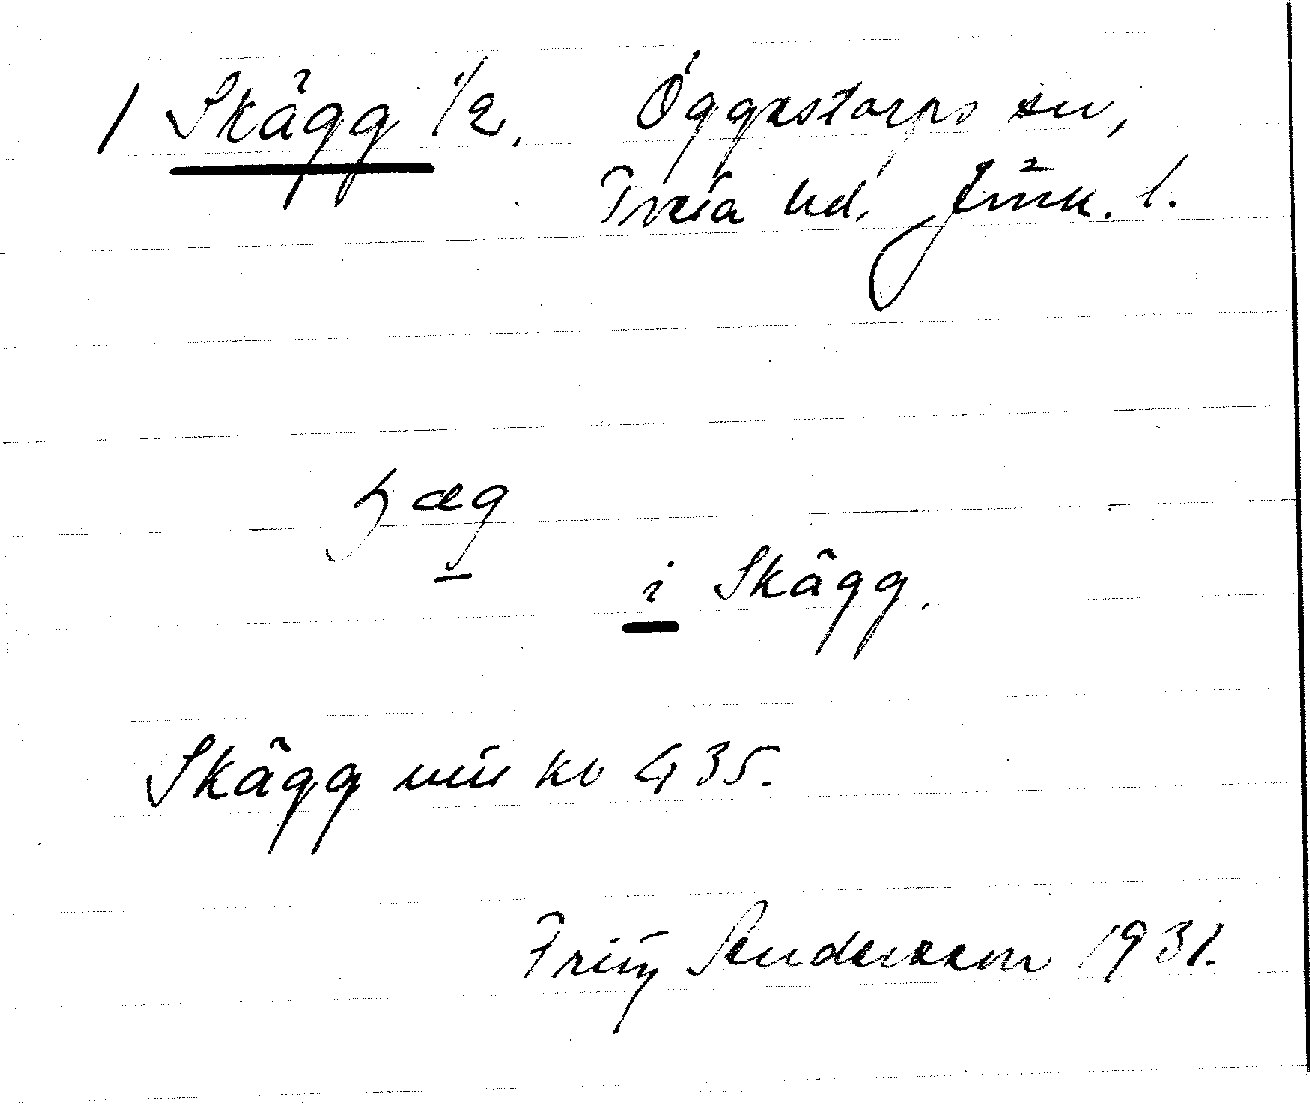 1 Skägg 1/2. Öggestorps sn,
Tveta hd. Jönk. l.
ɧæg
i Skägg.
Skägg min kb 435.
Fritz Andersson 1931.